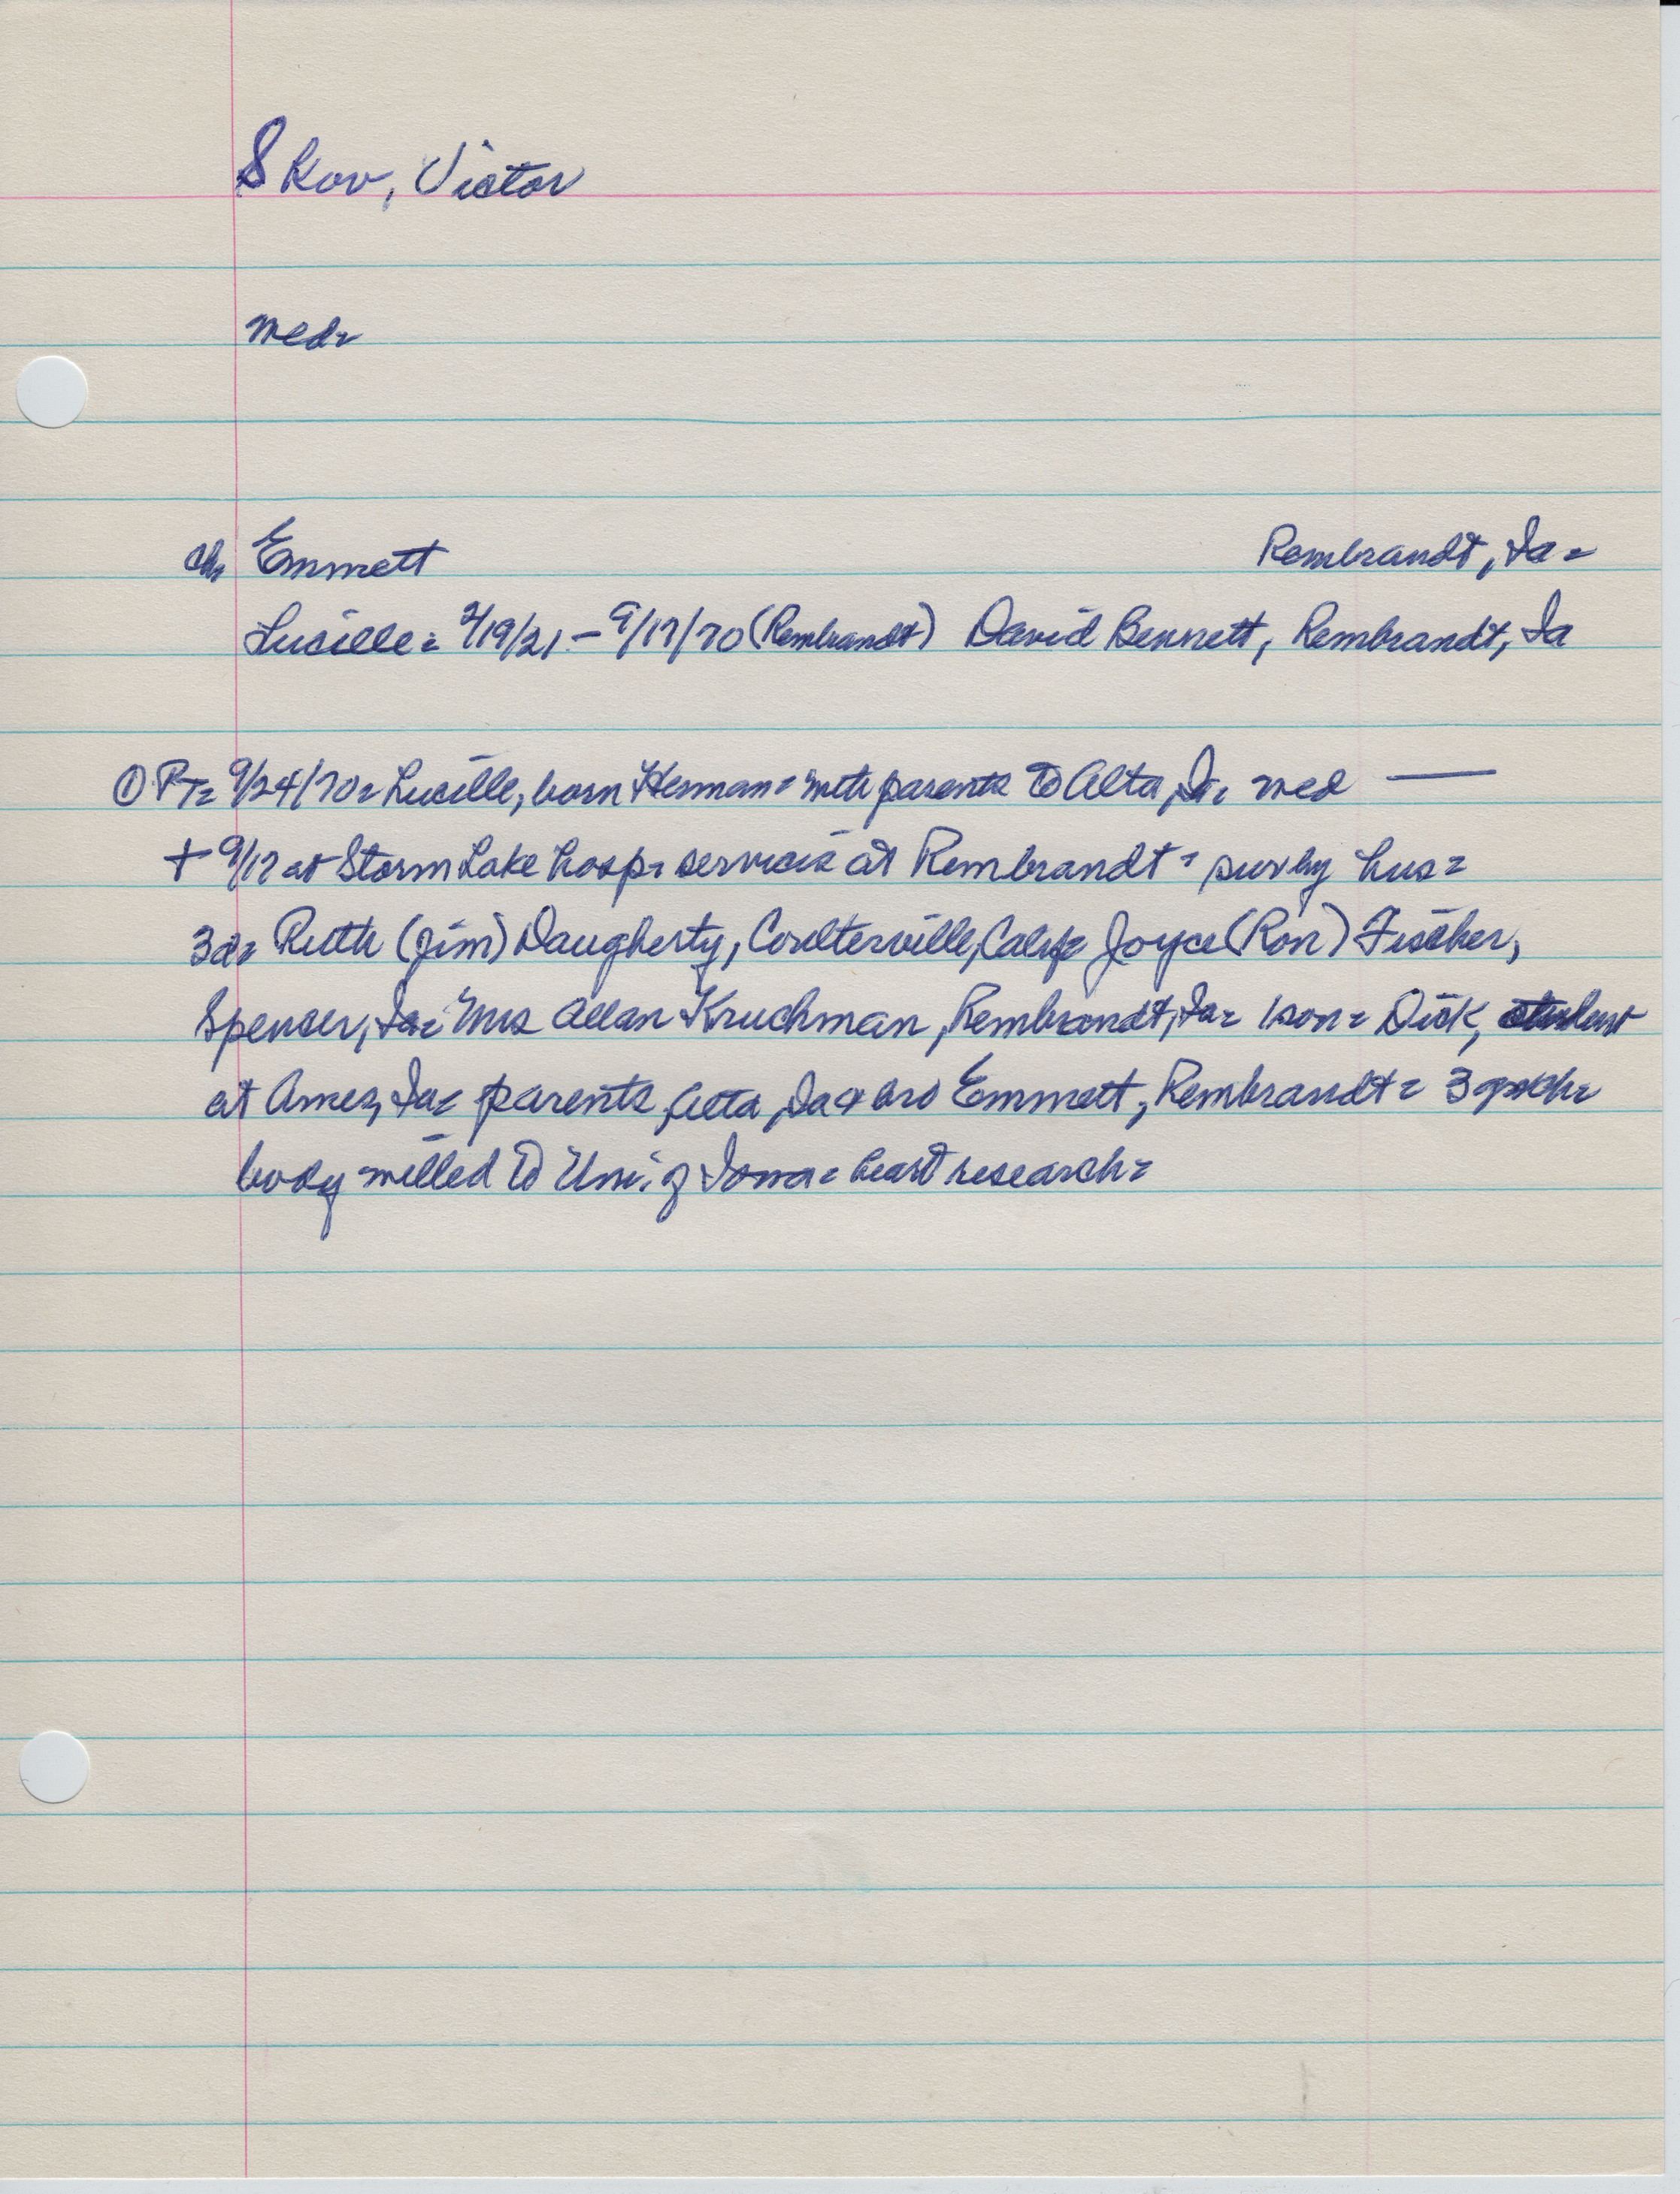 Skov, Victor
med=
ch= Emmett Rembrandt, Ia=
Lucille= 2/19/21 - 9/17/70 (Rembrandt) David Bennett, Rembrandt, Ia
① PT= 9/24/70= Lucille, born Herman= with parents to Alta, Ia= med —
+ 9/17 at Storm Lake hosp= services at Rembrandt= surv by hus=
3d= Ruth (Jim) Daugherty, Coulterville, Calif= Joyce (Ron) Fischer,
Spenser, Ia= Mrs Allan Kruchman, Rembrandt, Ia= 1 son= Dick, student
at Ames, Ia= parents, Alta, Ia & bro Emmett, Rembrandt= 3
body willed to Uni. of Iowa= heart research=